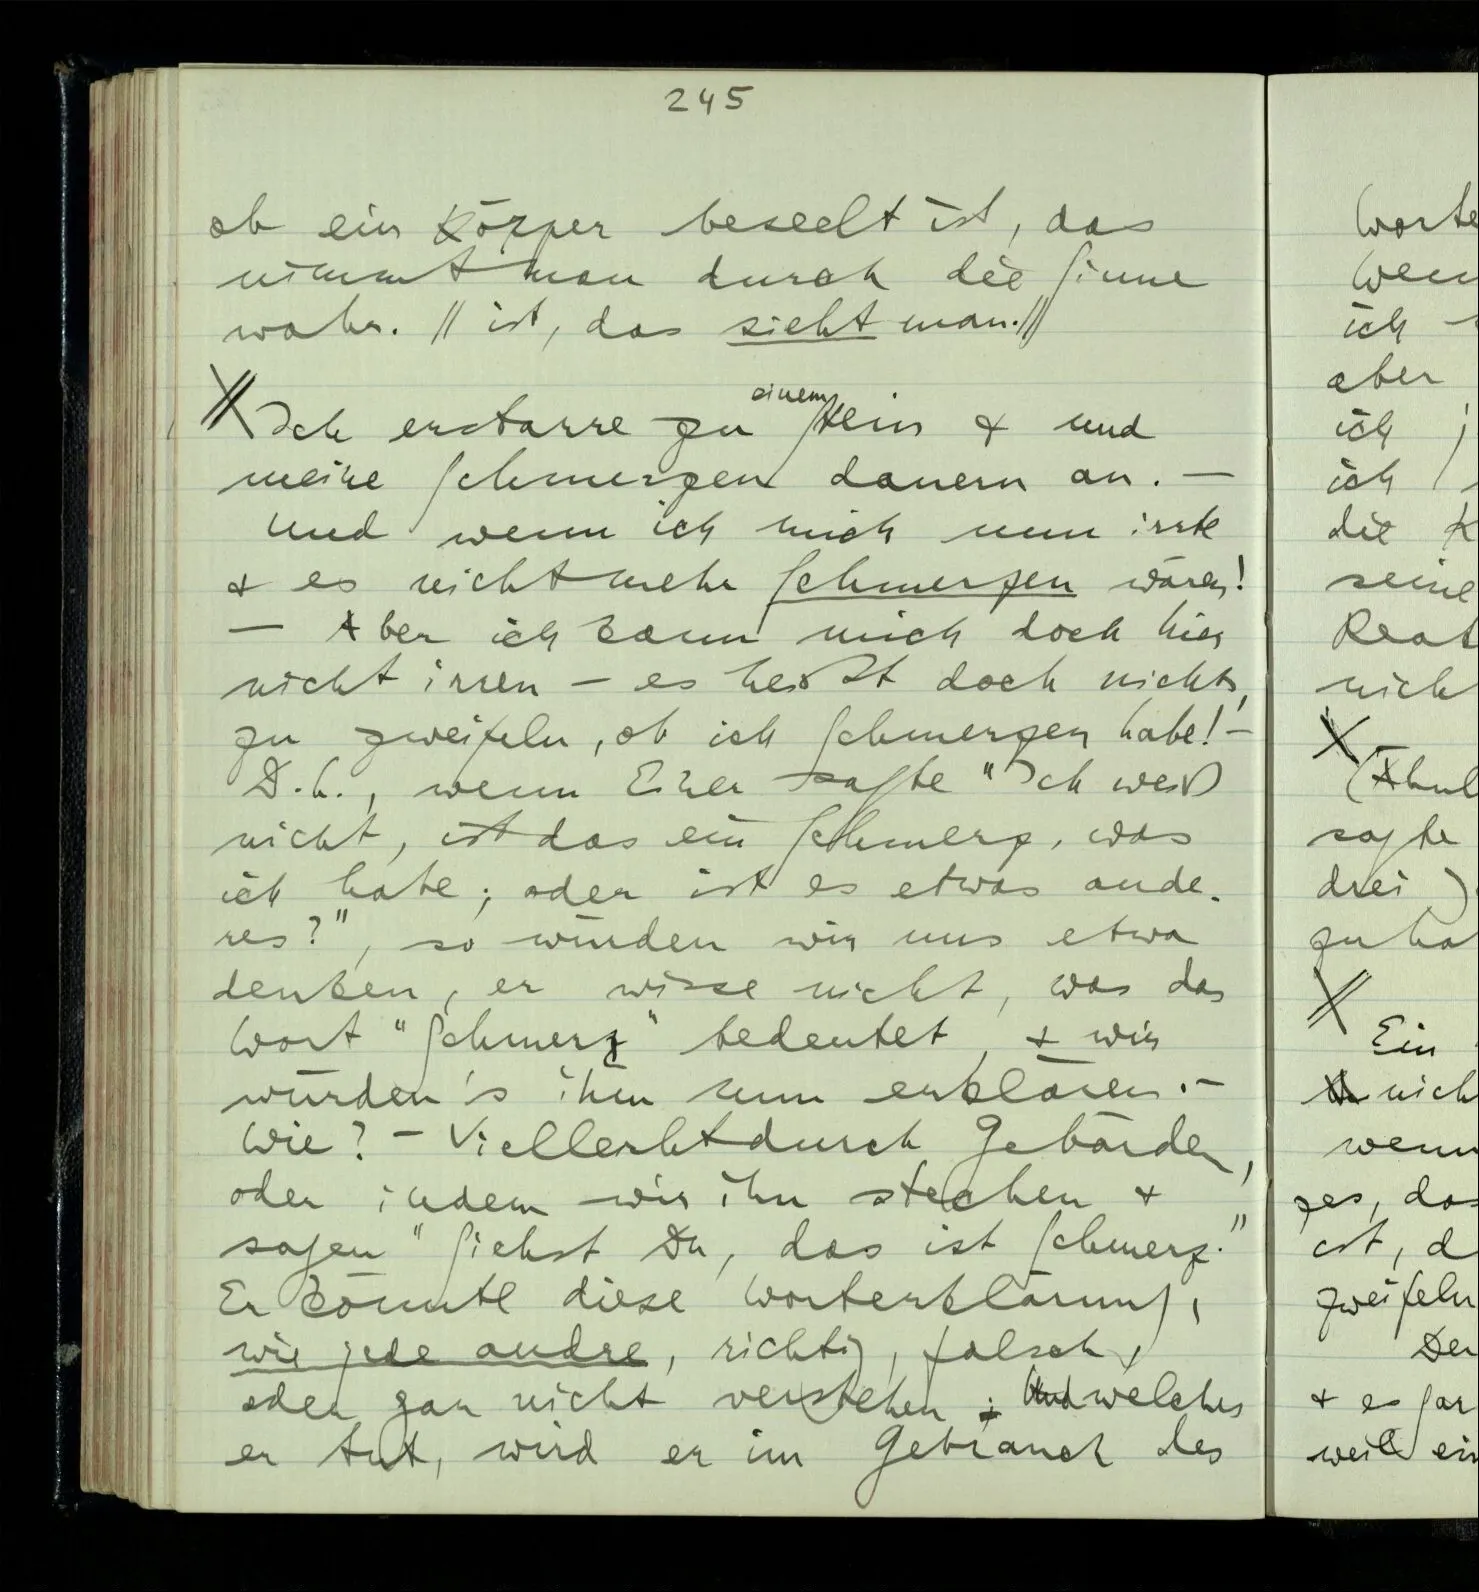 245
ob ein Körper beseelt ist, das
nimmt man durch die Sinne
wahr. // ist, das sieht man.//
Ich erstarre zu einem Stein & und
meine Schmerzen dauern an. —
Und wenn ich mich nun irrte
& es nicht mehr Schmerzen wären!
— Aber ich kann mich doch hier
nicht irren — es heißt doch nichts,
zu zweifeln, ob ich Schmerzen habe! —
D.h., wenn Einer sagte "Ich weiß
nicht, ist das ein Schmerz, was
ich habe, oder ist es etwas ande-
res?", so würden wir uns etwa
denken, er wisse nicht, was das
Wort "Schmerz" bedeutet, & wir
würden's ihm nun erklären. —
Wie? — Vielleicht durch Gebärden,
oder indem wir ihn stechen &
sagen "Siehst Du, das ist Schmerz."
Er könnte diese Worterklärung,
wie jede andre, richtig, falsch,
oder gar nicht verstehen; Und welches
er tut, wird er im Gebrauch des
Worte
ich
aber
ich
ich
die K
seine
nich
sagte
drei)
zu ha
Ein
nich
wenn
ist, d
zweifeln
Der
& es gar
weil ein